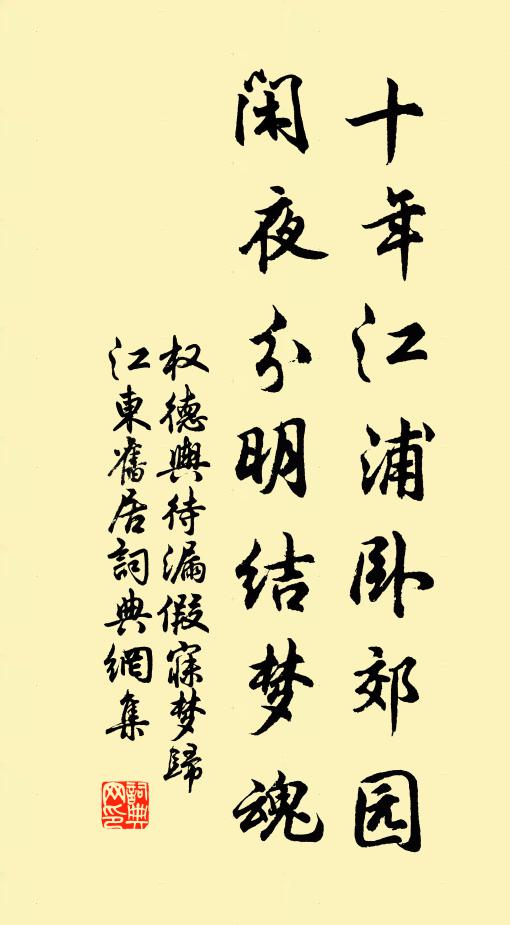 十年江浦卧郊园
闲夜分明结梦魂
权德舆待漏假寐梦归
江東舊居詞典網集
詞典网印